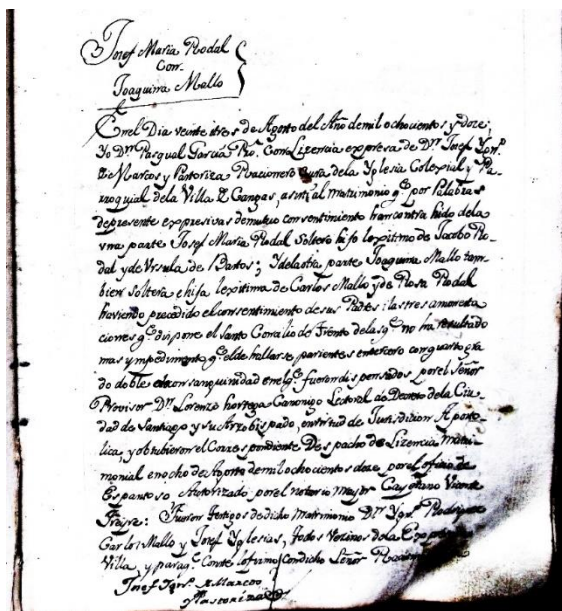 Josef Maria Rodal
Con
Joaquina Mallo
En el Dia veinte itres de Agosto del Año de mil ochocientos y doze;
Yo Dn. Pasqual Garcia Pro. Con Lizencia expresa de Dn. Josef Ygn.o
de Marcos y Pastoriza Racionero Cura dela Yglesia Colexial y Pa-
rroquial dela Villa de Cangas, asisti al Matrimonio q.e por Palabras
de presente expresivas de mutuo consentimiento han contrahido dela
una parte Josef Maria Rodal Soltero hijo lexitimo de Jacobo Ro-
dal y de Ursula de Bartos; Y dela otra parte Joaquina Mallo tam-
bien soltera e hija lexitima de Carlos Mallo y de Rosa Rodal
haviendo precedido el consentimiento de sus Padres: las tres amonesta
ciones q.e dispone el Santo Concilio de Trento delas q.e no ha resultado
mas ympedimento q.e el de hallarse parientes en tercero con quarto gra
do doble de consanguinidad en el q.e fueron dispensados por el señor
Provisor Dn. Lorenzo hortega Canonigo Lectoral de Decreto dela Ciu-
dad de Santiago y su Arzobispado, en virtud de Jurisdicion Aposto-
lica, y obtubieron el Correspondiente Despacho de Lizencia Matri-
monial en ocho de Agosto de mil ochocientos doze por el oficio de
Espantoso Autorizado por el notario Mayor Cayetano Vicente
Freyre: Fueron testigos de dicho Matrimonio Dn. Ygn.o Rodriguez
Carlos Mallo y Josef Yglesias, todos Vezinos dela
Villa, y para q.e Conste lo firmo Con dicho Señor
Josef Ygn.o de Marcos
y Pastoriza